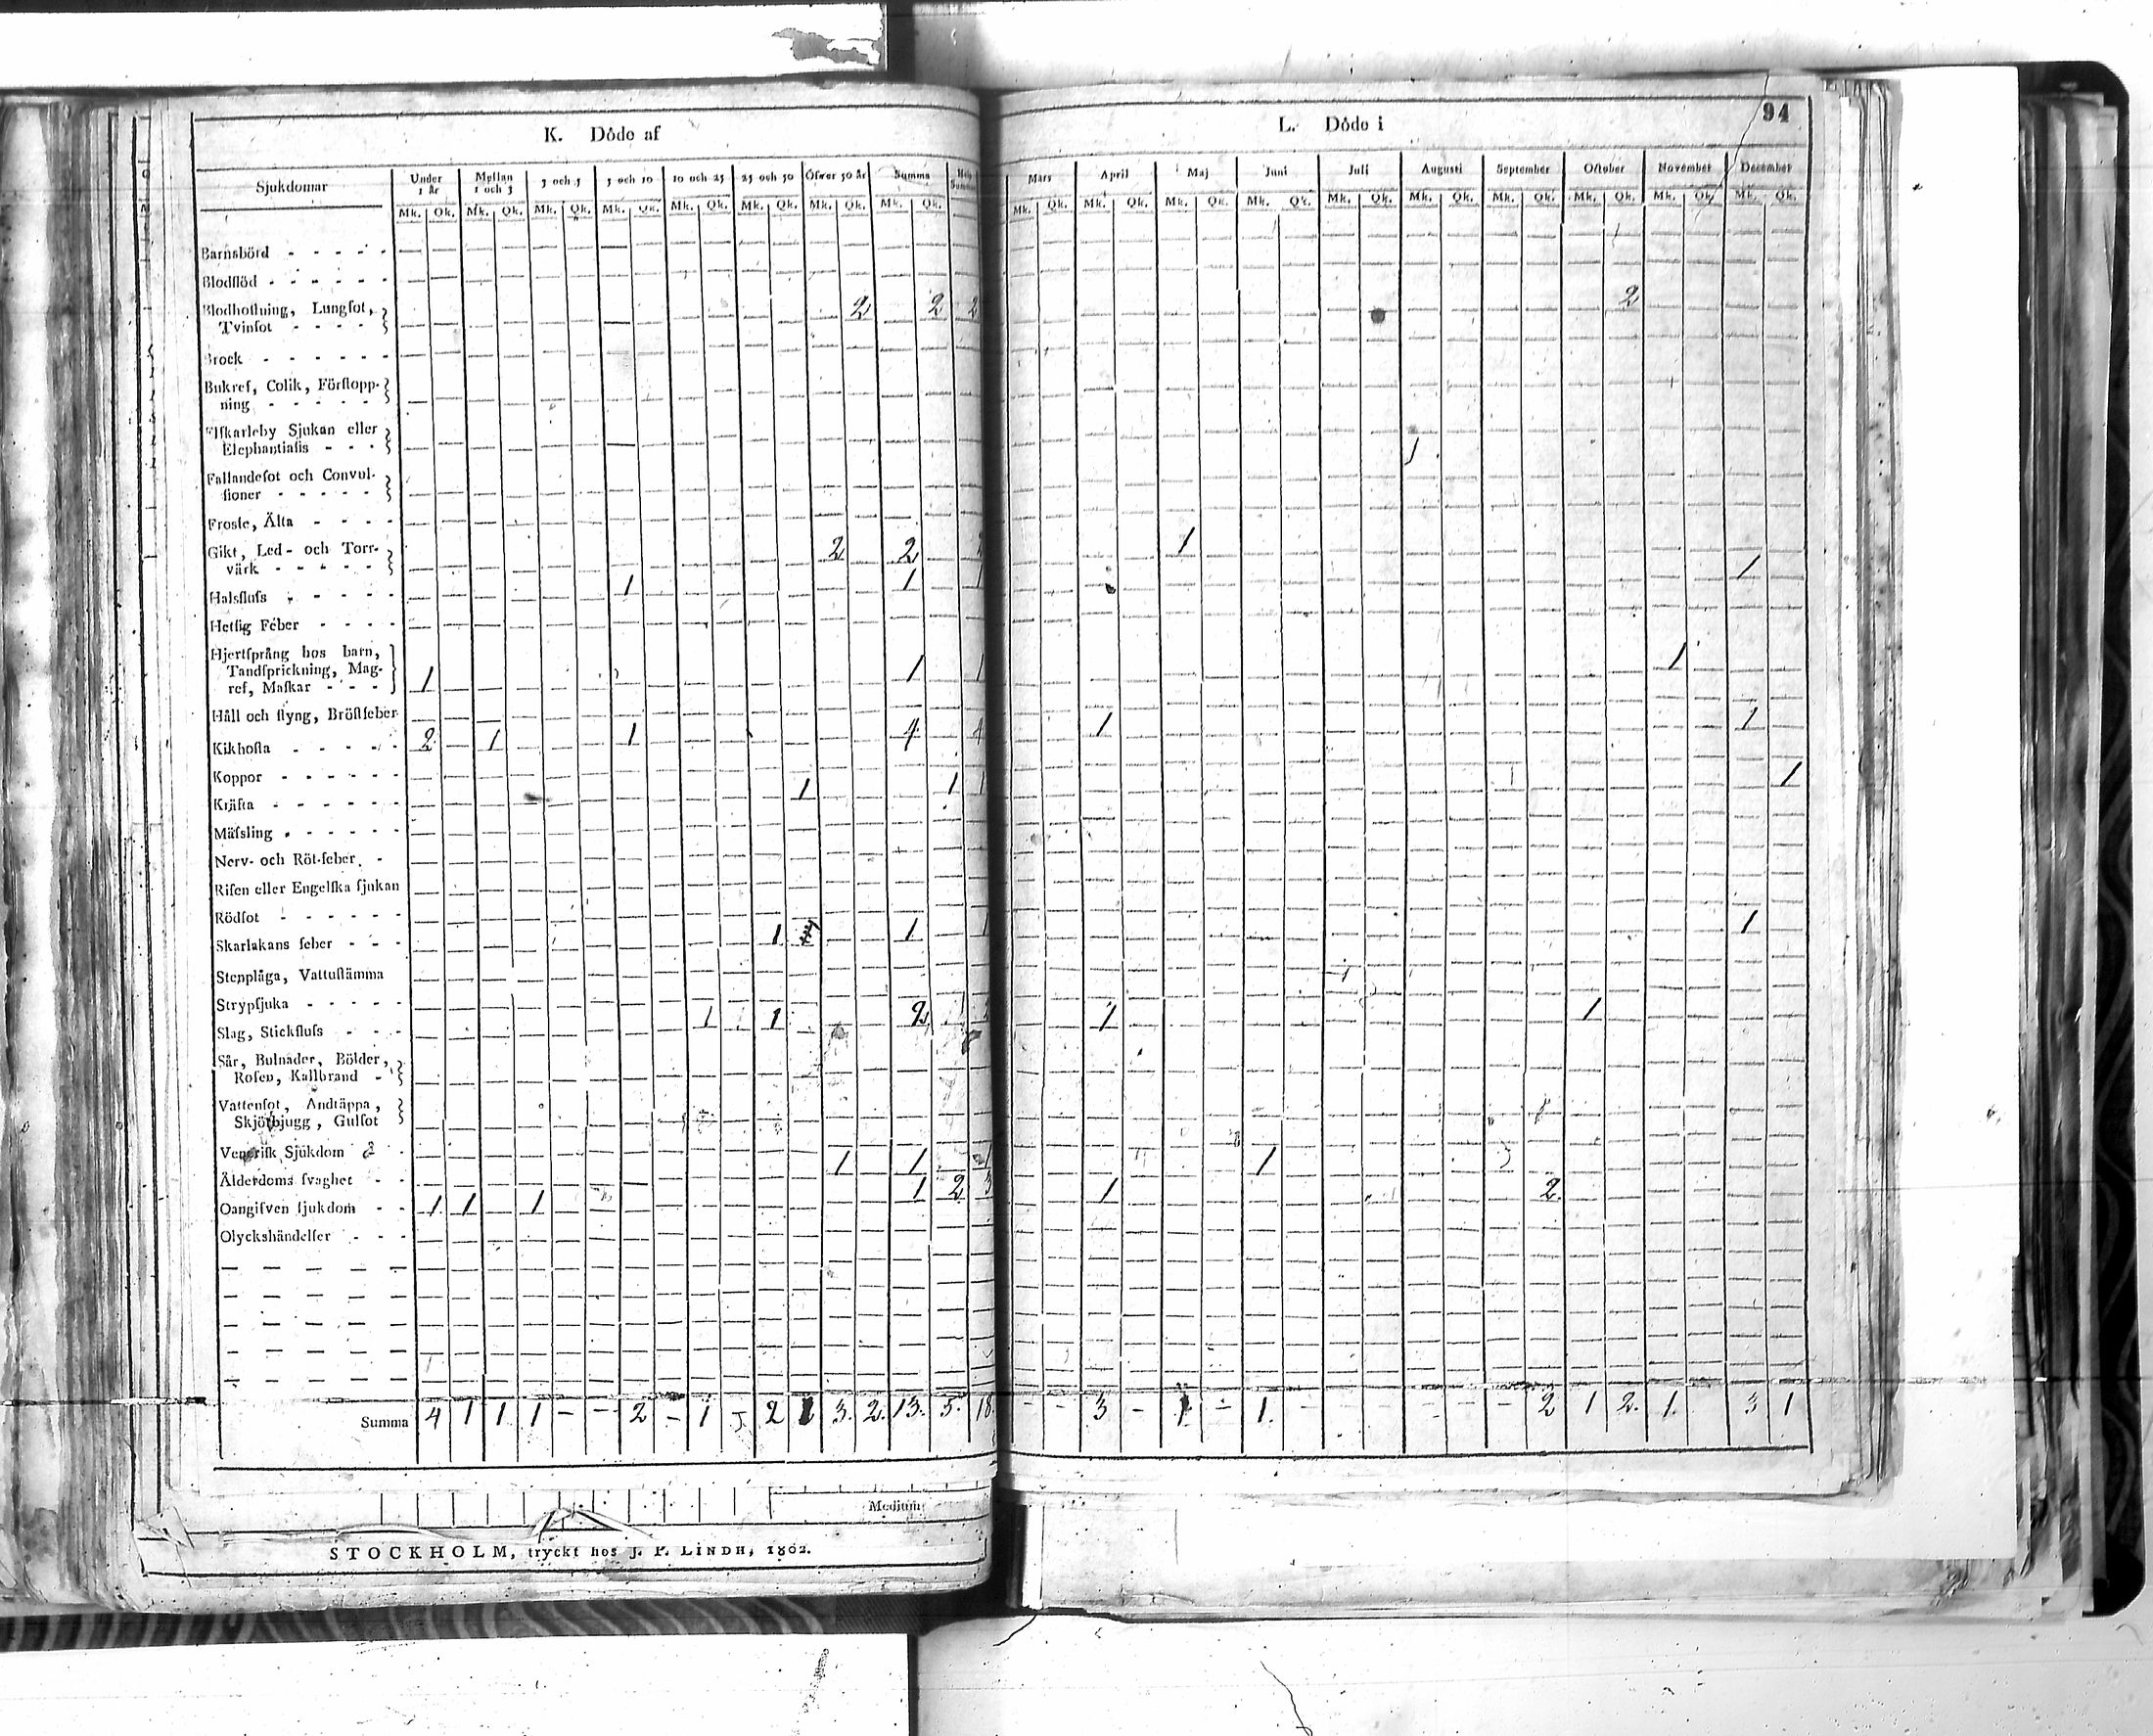 94
K. Döde af
L. Döde i
Sjukdomar
Under 1 år
Mellan 1 och 3
3 och 5
5 och 10
10 och 25
25 och 50
Öfwer 50 år
Summa
Mk. Qk. Mk. Qk. Mk. Qk. Mk. Qk. Mk. Qk. Mk. Qk. Mk. Qk. Mk. Qk.
Mars April Maj Junii Juli Augusti September October November December
Mk. Qk. Mk. Qk. Mk. Qk. Mk. Qk. Mk. Qk. Mk. Qk. Mk. Qk. Mk. Qk. Mk. Qk. Mk. Qk.
Barnsbörd
Blodflöd
Blodhoſtning, Lungſot,
Tvinſot 2 2 2 2
Brock
Bukref, Colik, Förſtopp-
ning
Elfkarleby Sjukan eller
Elephantiaſis
Fallandeſot och Convul-
ſioner
Froſſe, Älta
Gikt, Led- och Torr-
värk 2 2 2 1
Halsfluſs 1 1 1 1
Hetſig Feber
Hjertſprång hos barn,
Tandſprickning, Mag-
ref, Maſkar 1 1 1 1
Håll och ſtyng, Bröſtfeber
Kikhoſta 2 1 1 4 4 1 1
Koppor
Kräfta 1 1 1 1
Mäſsling
Nerv- och Röt-feber
Riſen eller Engelſka ſjukan
Rödſot
Skarlakans feber 1 1 1 1
Stenplåga, Vattuſtämma
Strypſjuka
Slag, Stickfluſs 1 1 2 2 1 1
Sår, Bulnader, Bölder,
Roſen, Kallbrand
Vattenſot, Andtäppa,
Skjörbjugg, Gulſot
Veneriſk Sjukdom
Ålderdoms ſvaghet 1 1 1 1
Oangifven ſjukdom 1 1 1 1 2 3 1 2
Olyckshändelſer
Summa 4 1 1 1 – – 2 – 1 – 2 1 3. 2. 13. 5. 18 – – 3 – 1 – 1. – – – – 2 1 2. 1. 3 1
Medium
STOCKHOLM, tryckt hos J. P. LINDH, 1802.